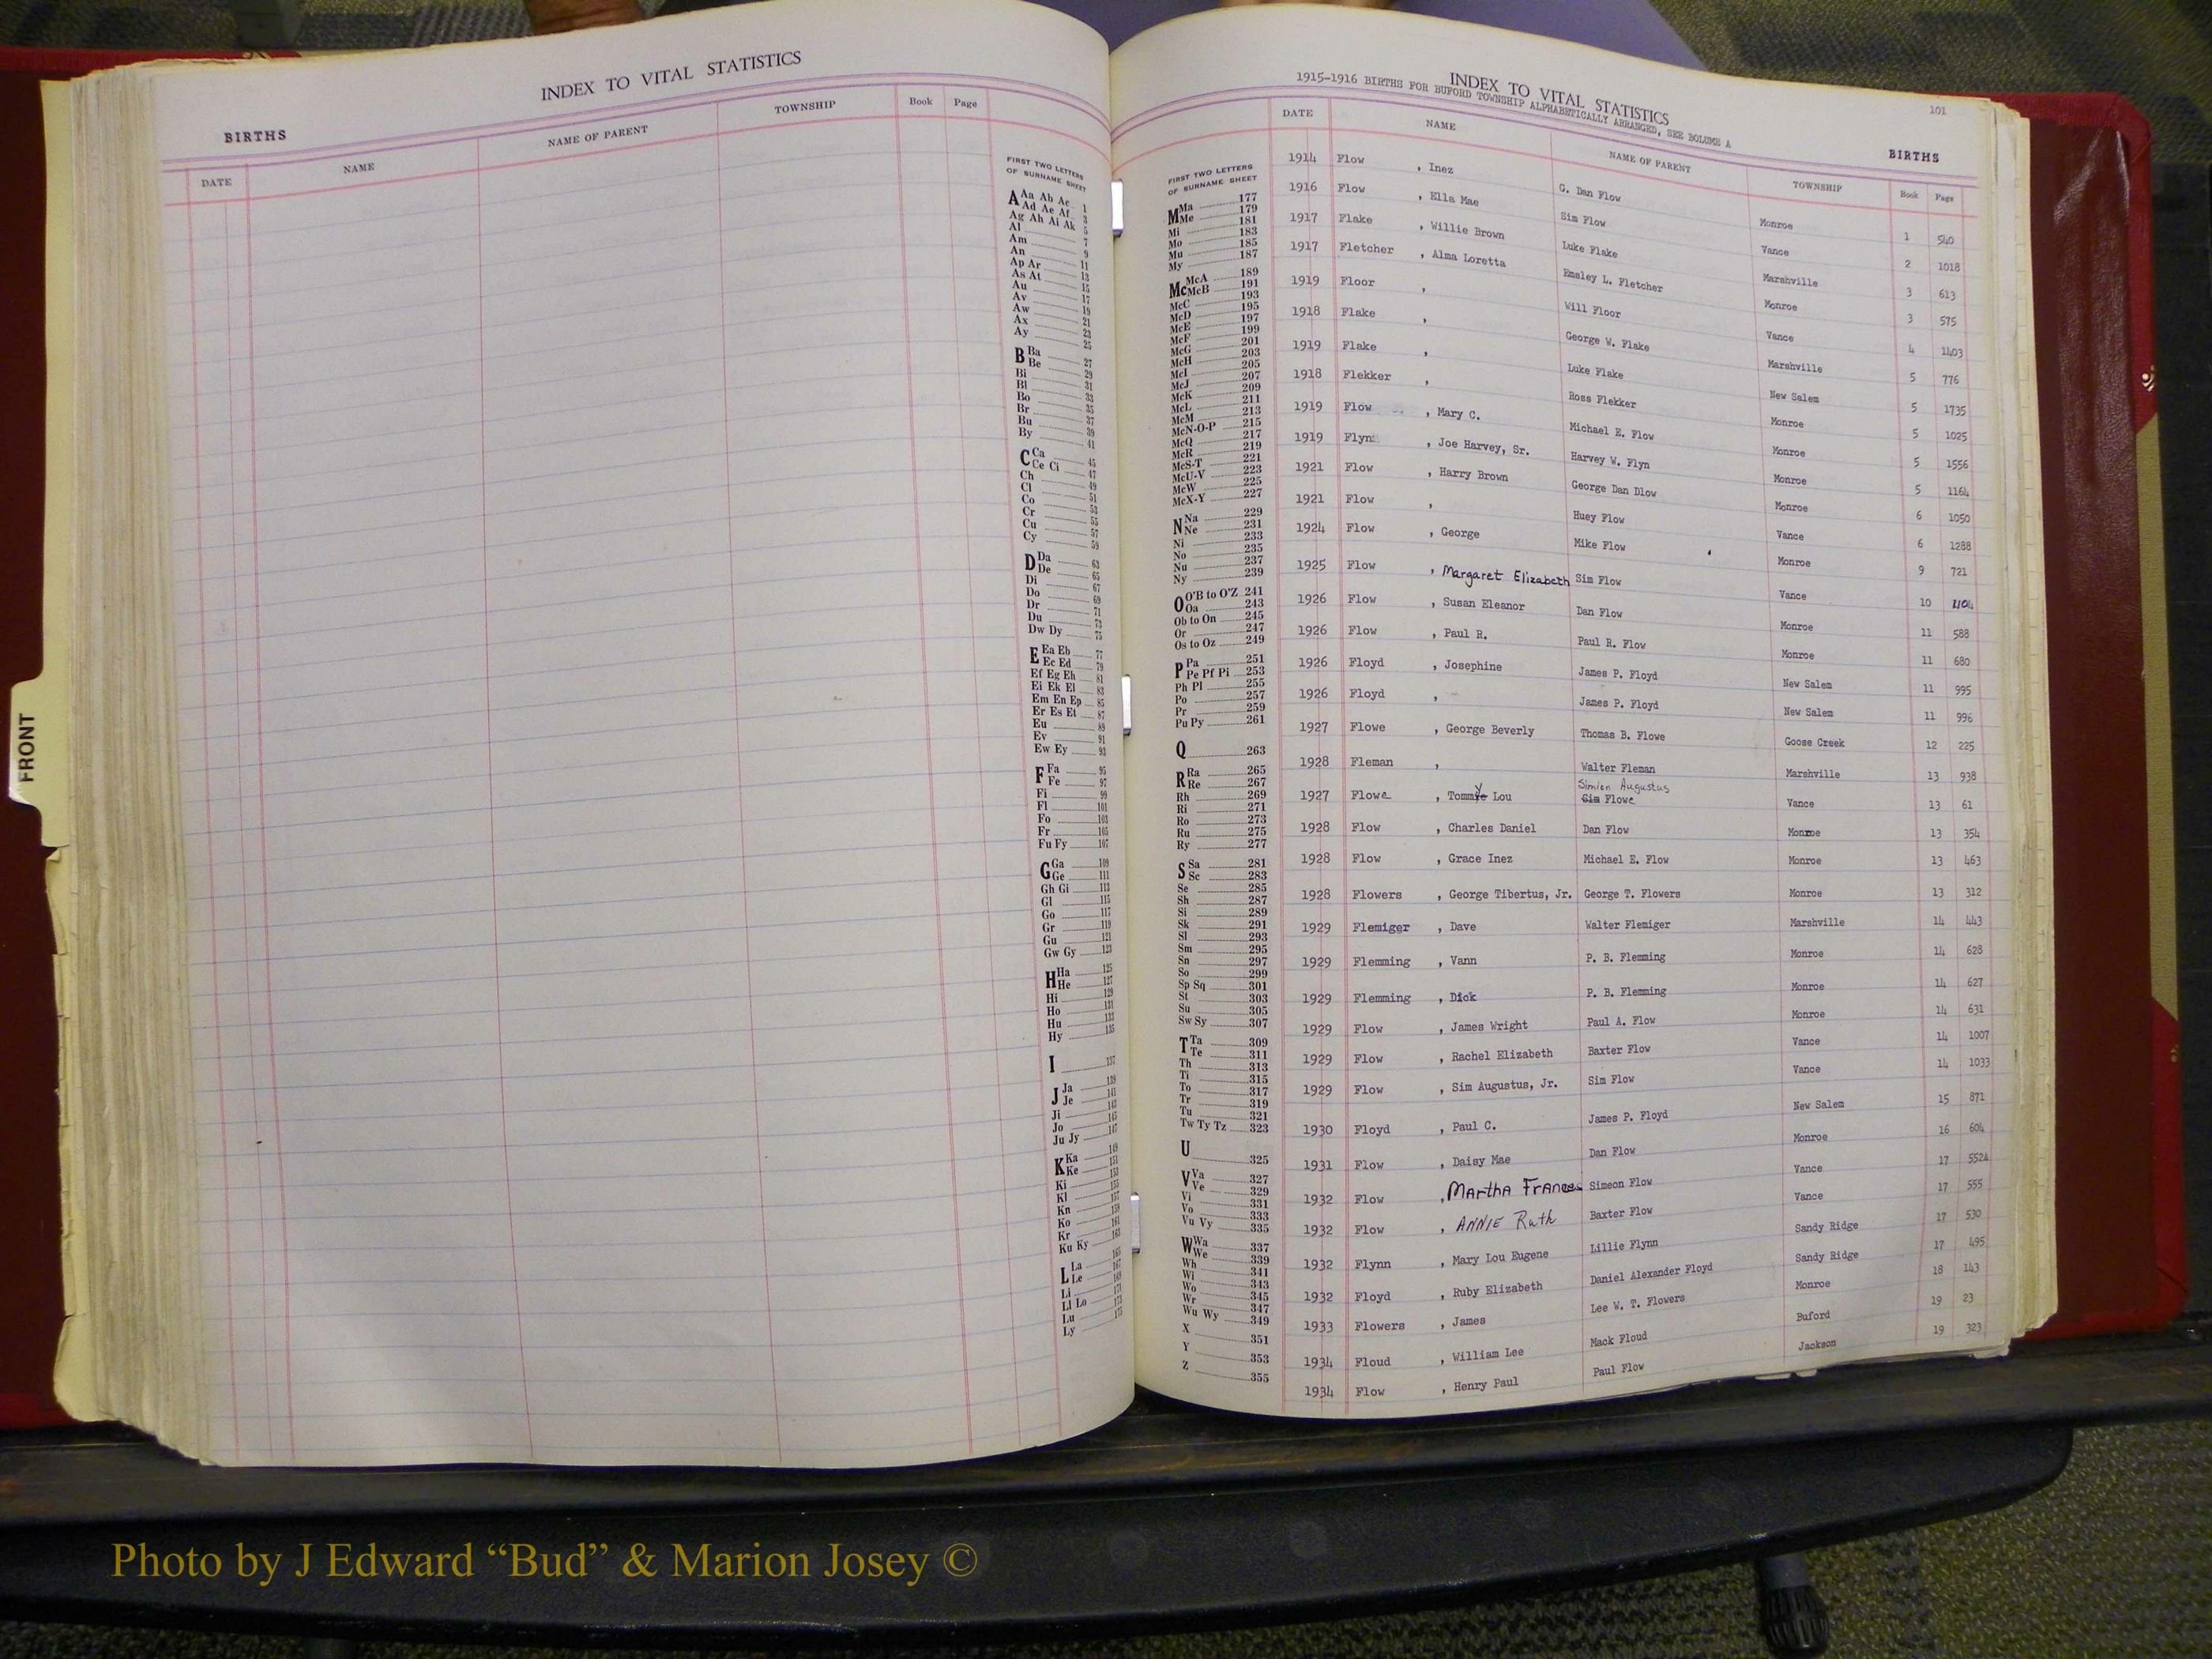 INDEX TO VITAL STATISTICS
BIRTHS
DATE NAME NAME OF PARENT TOWNSHIP Book Page
FIRST TWO LETTERS
OF SURNAME SHEET
A Aa Ab Ac 1
Ad Ae Af 3
Ag Ah Ai Ak 5
Al 7
Am 9
An 11
Ap Ar 13
As At 15
Au 17
Av 19
Aw 21
Ax 23
Ay 25
B Ba 27
Be 29
Bi 31
Bl 33
Bo 35
Br 37
Bu 39
By 41
C Ca 45
Ce Ci 47
Ch 49
Cl 51
Co 53
Cr 55
Cu 57
Cy 59
D Da 63
De 65
Di 67
Do 69
Dr 71
Du 73
Dw Dy 75
E Ea Eb 77
Ec Ed 79
Ef Eg Eh 81
Ei Ek El 83
Em En Ep 85
Er Es Et 87
Eu 89
Ev 91
Ew Ey 93
F Fa 95
Fe 97
Fi 99
Fl 101
Fo 103
Fr 105
Fu Fy 107
G Ga 109
Ge 111
Gh Gi 113
Gl 115
Go 117
Gr 119
Gu 121
Gw Gy 123
H Ha 125
He 127
Hi 129
Ho 131
Hu 133
Hy 135
I 137
J Ja 139
Je 141
Ji 143
Jo 145
Ju Jy 147
K Ka 149
Ke 151
Ki 153
Kl 155
Kn 157
Ko 159
Kr 161
Ku Ky 163
L La 165
Le 167
Li 169
Ll Lo 171
Lu 173
Ly 175
FRONT
INDEX TO VITAL STATISTICS
1915-1916 BIRTHS FOR BUFORD TOWNSHIP ALPHABETICALLY ARRANGED, SEE BOLUME A
101
BIRTHS
DATE NAME NAME OF PARENT TOWNSHIP Book Page
FIRST TWO LETTERS
OF SURNAME SHEET
M Ma 177
Me 179
Mi 181
Mo 183
Mu 185
My 187
Mc McA 189
McB 191
McC 193
McD 195
McE 197
McF 199
McG 201
McH 203
McI 205
McJ 207
McK 209
McL 211
McM 213
McN-O-P 215
McQ 217
McR 219
McS-T 221
McU-V 223
McW 225
McX-Y 227
N Na 229
Ne 231
Ni 233
No 235
Nu 237
Ny 239
O O'B to O'Z 241
Oa 243
Ob to On 245
Or 247
Os to Oz 249
P Pa 251
Pe Pf Pi 253
Ph Pl 255
Po 257
Pr 259
Pu Py 261
Q 263
R Ra 265
Re 267
Rh 269
Ri 271
Ro 273
Ru 275
Ry 277
S Sa 281
Sc 283
Se 285
Sh 287
Si 289
Sk 291
Sl 293
Sm 295
Sn 297
So 299
Sp Sq 301
St 303
Su 305
Sw Sy 307
T Ta 309
Te 311
Th 313
Ti 315
To 317
Tr 319
Tu 321
Tw Ty Tz 323
U 325
V Va 327
Ve 329
Vi 331
Vo 333
Vu Vy 335
W Wa 337
We 339
Wh 341
Wi 343
Wo 345
Wr 347
Wu Wy 349
X 351
Y 353
Z 355
1914 Flow , Inez G. Dan Flow Monroe 1 540
1916 Flow , Ella Mae Sim Flow Vance 2 1018
1917 Flake , Willie Brown Luke Flake Marshville 3 613
1917 Fletcher , Alma Loretta Emsley L. Fletcher Monroe 3 575
1919 Floor , Will Floor Vance 4 1403
1918 Flake , George W. Flake Marshville 5 776
1919 Flake , Luke Flake New Salem 5 1735
1918 Flekker , Ross Flekker Monroe 5 1025
1919 Flow , Mary C. Michael E. Flow Monroe 5 1556
1919 Flyn , Joe Harvey, Sr. Harvey W. Flyn Monroe 5 1164
1921 Flow , Harry Brown George Dan Dlow Monroe 6 1050
1921 Flow , Huey Flow Vance 6 1288
1924 Flow , George Mike Flow Monroe 9 721
1925 Flow , Margaret Elizabeth Sim Flow Vance 10
1926 Flow , Susan Eleanor Dan Flow Monroe 11 588
1926 Flow , Paul R. Paul R. Flow Monroe 11 680
1926 Floyd , Josephine James P. Floyd New Salem 11 995
1926 Floyd , - James P. Floyd New Salem 11 996
1927 Flowe , George Beverly Thomas B. Flowe Goose Creek 12 225
1928 Fleman , Walter Fleman Marshville 13 938
Simien Augustus
1927 Flowe , Tommye Lou Sim Flowe Vance 13 61
1928 Flow , Charles Daniel Dan Flow Monroe 13 354
1928 Flow , Grace Inez Michael E. Flow Monroe 13 463
1928 Flowers , George Tibertus, Jr. George T. Flowers Monroe 13 312
1929 Flemiger , Dave Walter Flemiger Marshville 14 443
1929 Flemming , Vann P. B. Flemming Monroe 14 628
1929 Flemming , Dick P. B. Flemming Monroe 14 627
1929 Flow , James Wright Paul A. Flow Monroe 14 631
1929 Flow , Rachel Elizabeth Baxter Flow Vance 14 1007
1929 Flow , Sim Augustus, Jr. Sim Flow Vance 14 1033
1930 Floyd , Paul C. James P. Floyd New Salem 15 871
1931 Flow , Daisy Mae Dan Flow Monroe 16 604
1932 Flow , Martha Frances Simeon Flow Vance 17 552A
1932 Flow , ANNIE Ruth Baxter Flow Vance 17 555
1932 Flynn , Mary Lou Eugene Lillie Flynn Sandy Ridge 17 530
1932 Floyd , Ruby Elizabeth Daniel Alexander Floyd Sandy Ridge 17 495
1933 Flowers , James Lee W. T. Flowers Monroe 18 143
1934 Floud , William Lee Mack Floud Buford 19 23
1934 Flow , Henry Paul Paul Flow Jackson 19 323
Photo by J Edward “Bud” & Marion Josey ©